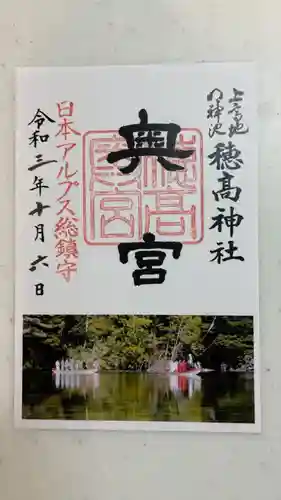 上高地
明神池
穂高神社
奥宮
日本アルプス総鎮守
令和三年十月六日